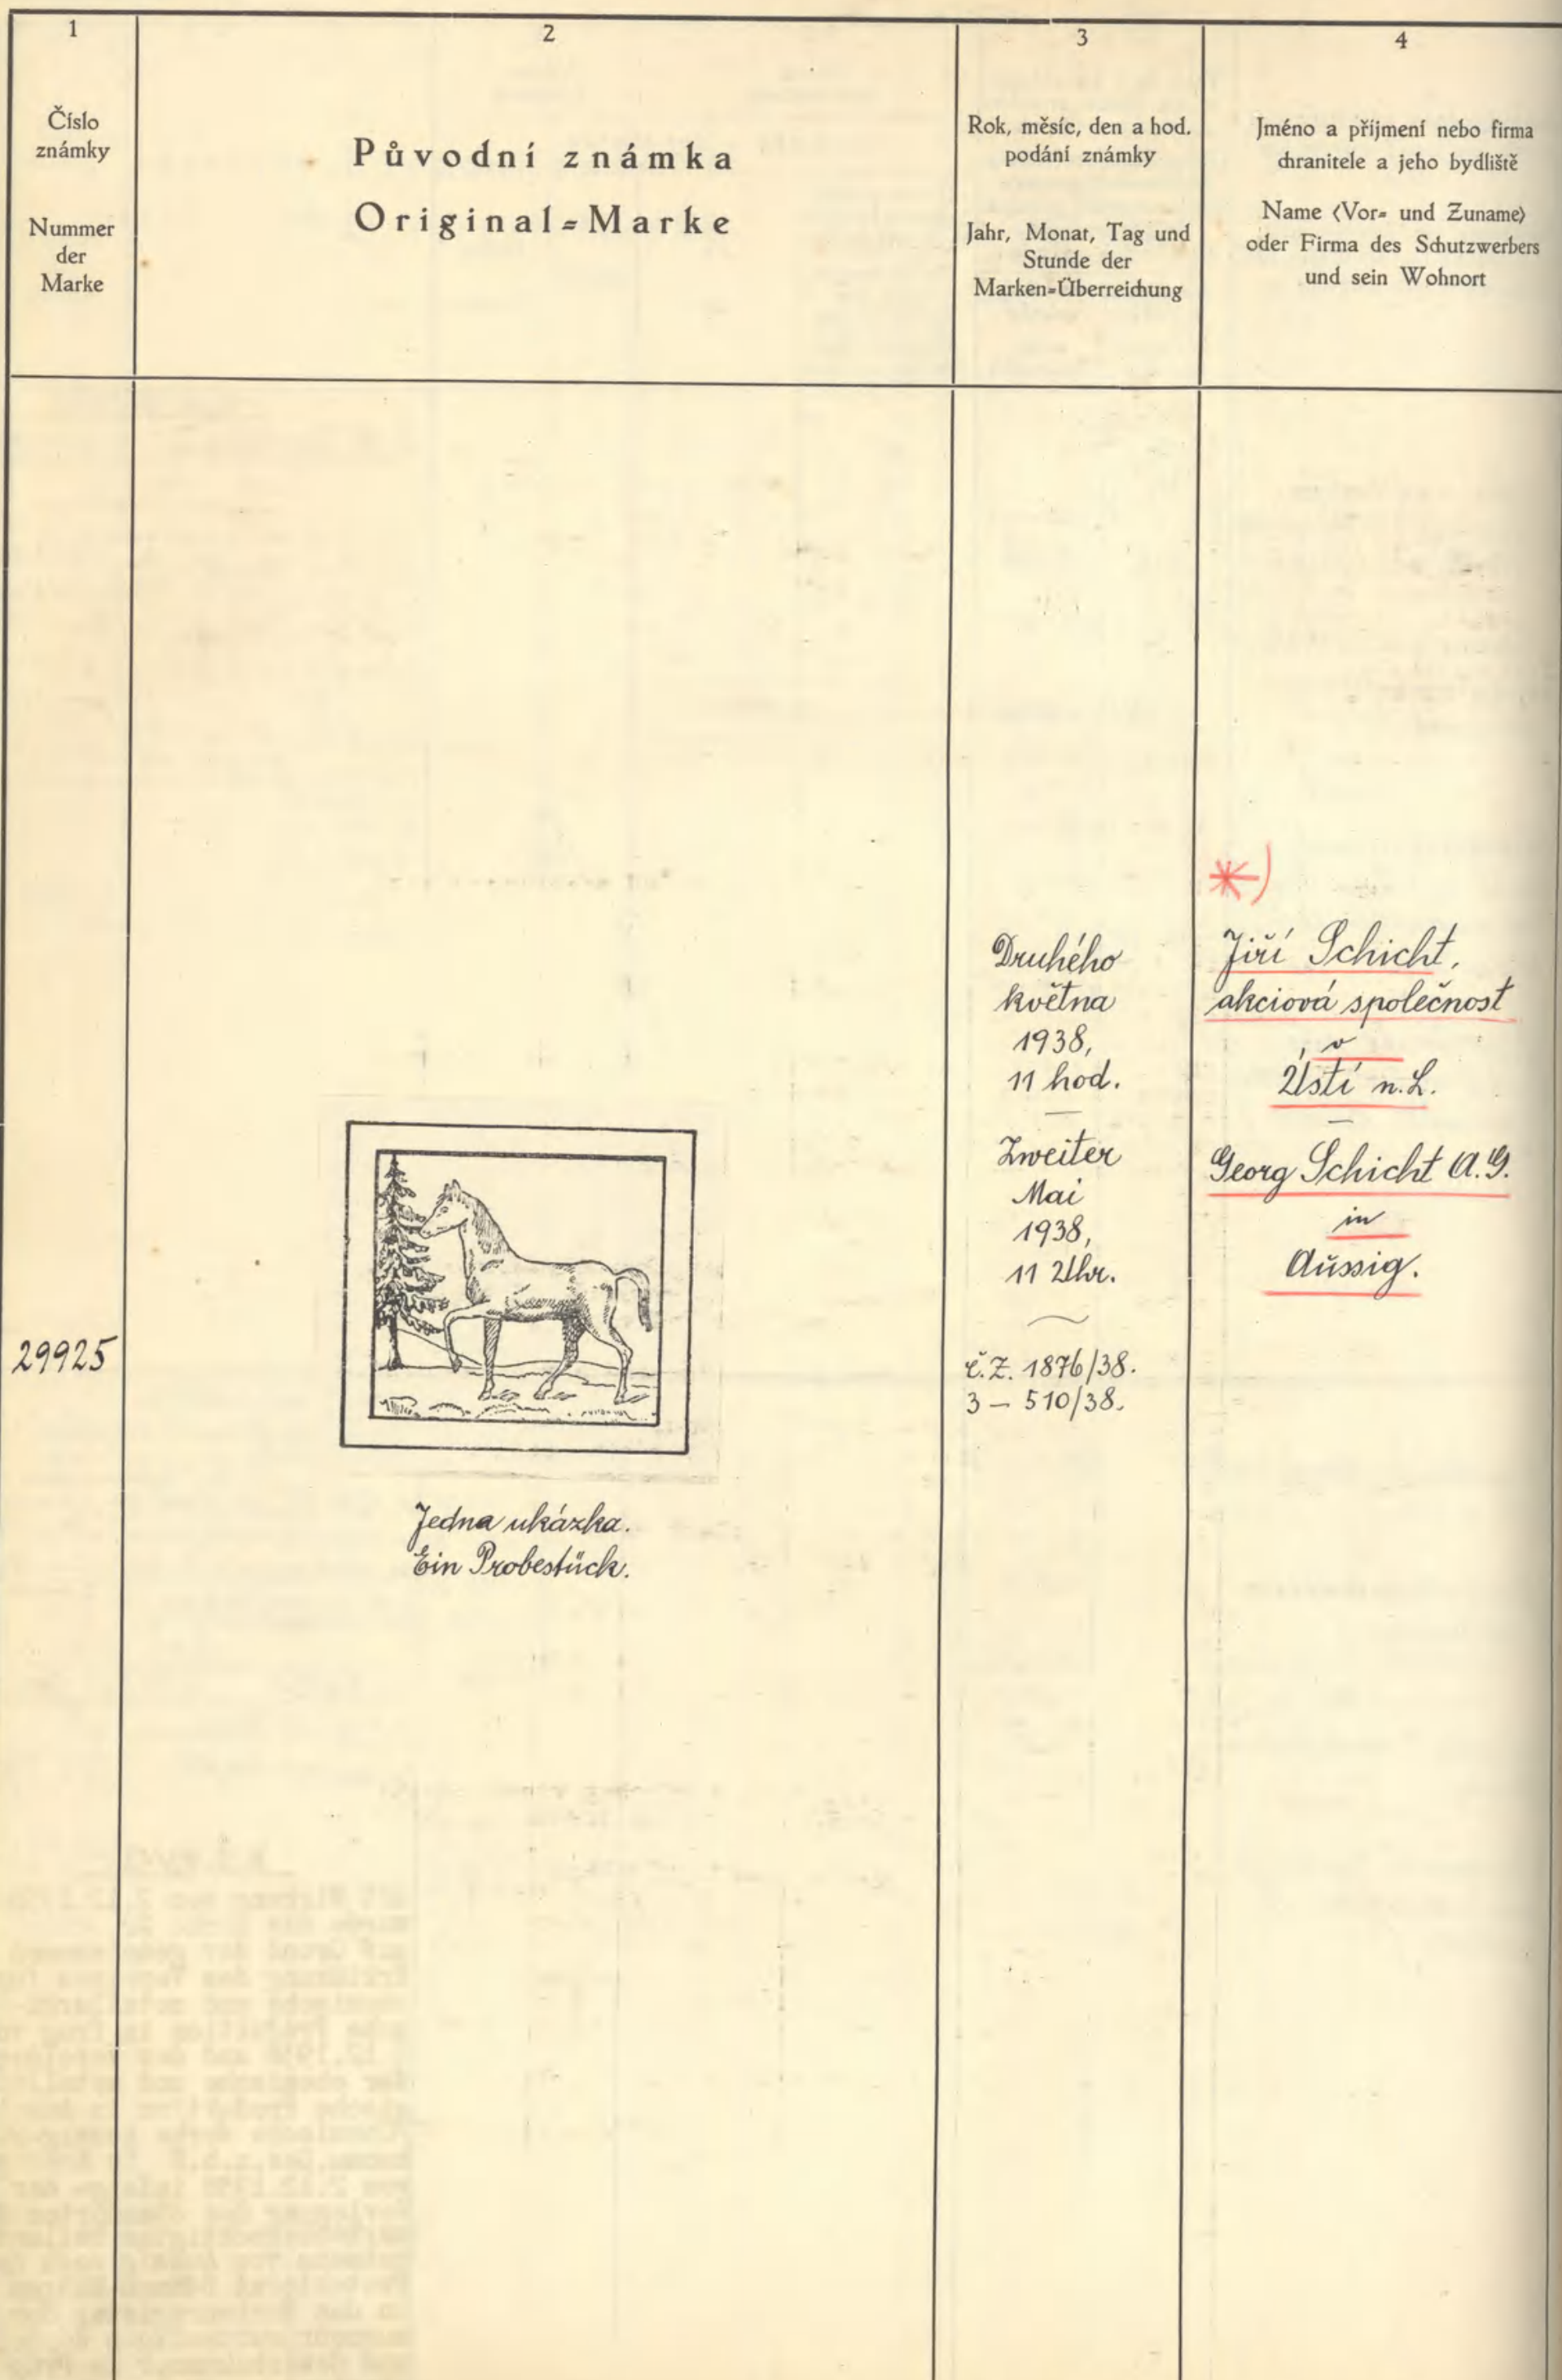 1
Číslo
známky
Nummer
der
Marke
2
Původní známka
Original=Marke
3
Rok, měsíc, den a hod.
podání známky
Jahr, Monat, Tag und
Stunde der
Marken=Überreichung
4
Jméno a přijmení nebo firma
chranitele a jeho bydliště
Name (Vor= und Zuname)
oder Firma des Schutzwerbers
und sein Wohnort
29925
Jedna ukázka.
Ein Probestück.
Druhého
května
1938,
11 hod.
Zweiter
Mai
1938,
11 Uhr.
č.Z. 1876/38.
3 – 510/38.
*)
Jiří Schicht,
akciová společnost
v
Ústí n.L.
Georg Schicht A.G.
in
Aussig.